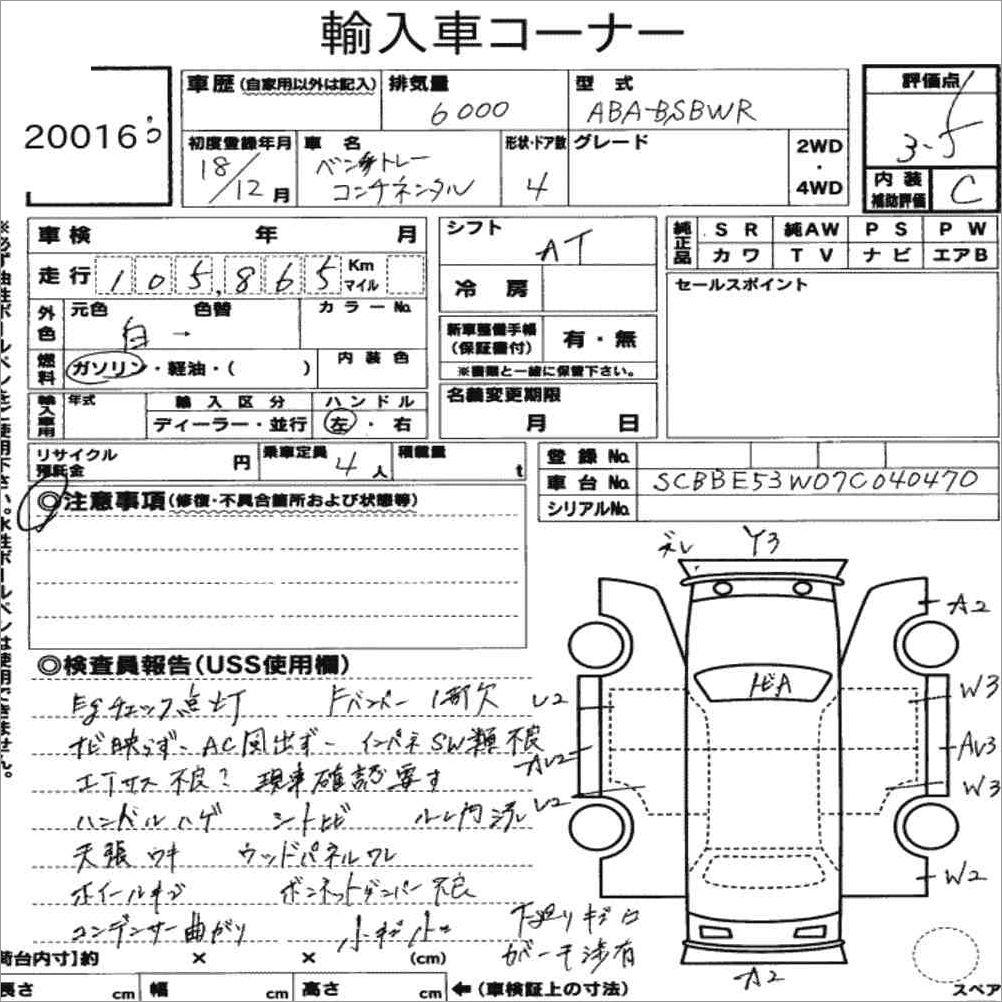 輸入車コーナー
20016
車歴 (自家用以外は記入) 排気量 6000 型式 ABA-BSBWR 評価点 3.5
初度登録年月 18/12月 車名 ベントレー コンチネンタル 形状・ドア数 4 グレード 2WD・4WD
内装補助評価 C
車検 年 月
シフト AT
純正品 SR 純AW PS PW
カワ TV ナビ エアB
走行 105,865 Km マイル
冷房
セールスポイント
外色 元色 白 → 色替 カラーNo.
新車整備手帳(保証書付) 有・無
※書類と一緒に保管下さい。
燃料 ガソリン・軽油・( ) 内装色
名義変更期限 月 日
輸入車用 年式 輸入区分 ハンドル
ディーラー・並行 左・右
リサイクル預託金 円 乗車定員 4人 積載量 t
登録No.
車台No. SCBBE53W07C040470
シリアルNo.
◎注意事項(修復・不具合箇所および状態等)
◎検査員報告(USS使用欄)
Egチェック点灯 Fバンパー 1部欠
ナビ映らず AC風出ず インパネSW類不良
エアサス不良? 現車確認要す
ハンドルハゲ シートヒビ ルーム内汚れ
天張ウキ ウッドパネルワレ
ホイールキズ ボンネットダンパー不良
コンデンサー曲がり 小キズ小凹
下廻りキズ凹
ガバー干渉有
ズレ Y3
A2
トビA
W3
AV3
W3
W2
A2
U2
AU2
U2
荷台内寸】約 × × (cm)
長さ cm 幅 cm 高さ cm ←(車検証上の寸法)
スペア
※必ず油性ボールペンをご使用下さい。水性ボールペンは使用できません。